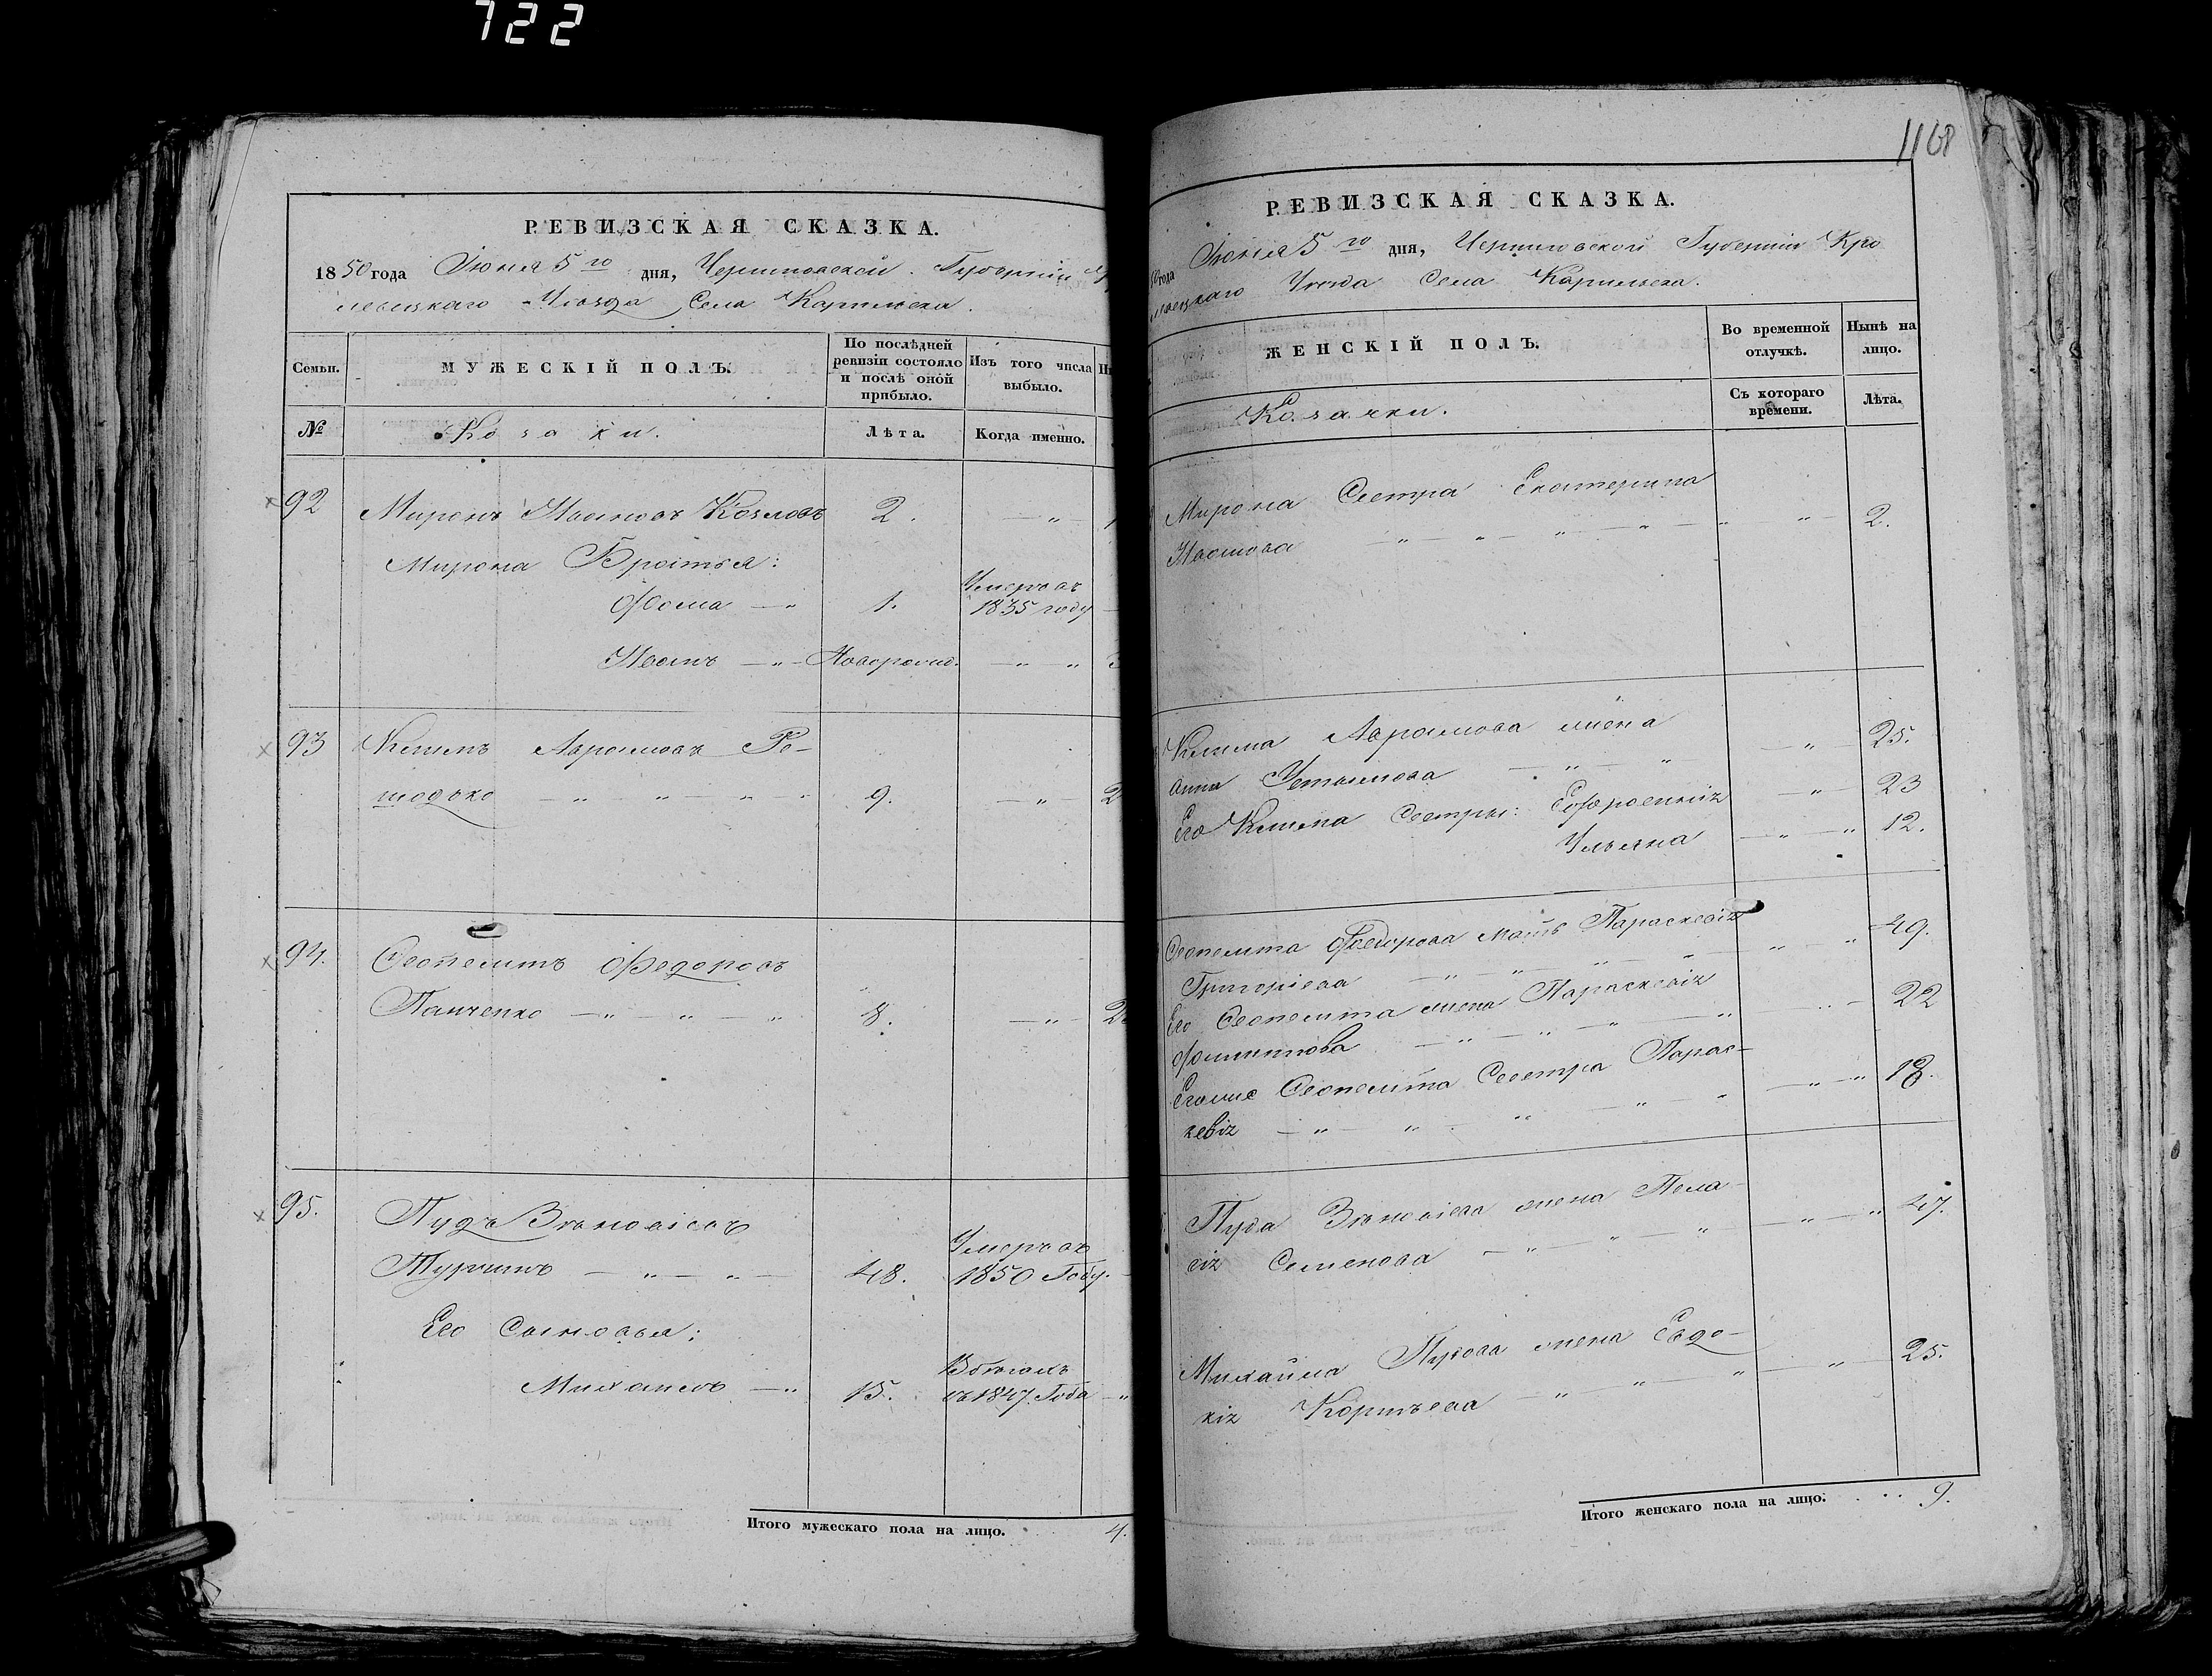 722
1168
РЕВИЗСКАЯ СКАЗКА.
1850 года Іюня 5го дня, Черниговской Губерніи
левецкаго Уѣзда Села Карыльска.
Семьи.
МУЖЕСКІЙ ПОЛЪ.
По послѣдней ревизіи состояло и послѣ оной прибыло.
Изъ того числа выбыло.
№
Козаки.
Лѣта.
Когда именно.
92 Миронъ Ивановъ Козловъ 2.
Мирона Братья:
Фома 1. Умеръ въ 1835 году
Иванъ Новорожд.
93 Климъ Аврамовъ Ре-
9.
94. Ѳеопемптъ Федоровъ
Панченко 8.
95. Пудъ Зѣновіевъ
48. Умеръ въ 1850 Году.
Его Сыновья:
Михаилъ 15. Въ бѣгахъ съ 1847 Года
Итого мужескаго пола на лицо. 4.
РЕВИЗСКАЯ СКАЗКА.
года Іюня 5го дня, Черниговской Губерніи Кро
левецкаго Уѣзда Села Карыльска.
ЖЕНСКІЙ ПОЛЪ.
Во временной отлучкѣ.
Нынѣ на лицо.
Козачки.
Съ котораго времени.
Лѣта.
Мирона Сестра Екатерина
Иванова 2.
Клима Аврамова жена
Анна Устимова 25.
Его Клима Сестры: Ефросинія 23
Ульяна 12.
Ѳеопемпта Федорова мать Параскевія
Григоріева 49.
Его Ѳеопемпта жена Параскевія
22
Егоже Ѳеопемпта Сестра Парас-
кевія 18.
Пуда Зѣновіева жена Пела-
гія Семенова 47.
Михайла Пудова жена Евдо-
кія Корнѣева 25.
Итого женскаго пола на лицо. 9.